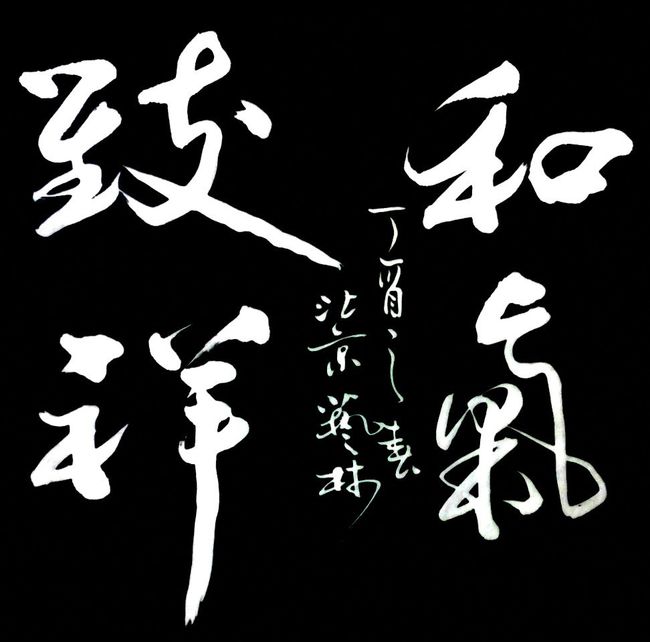 和氣
致祥
丁酉之春
北京藝林